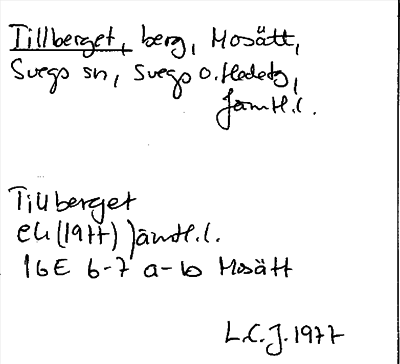 Tillberget, berg, Mosätt,
Svegs sn, Svegs o. Hedetg,
Jämtl.l.
Tillberget
ek (1977) Jämtl.l.
16E 6-7 a-b Mosätt
L.C.J. 1977